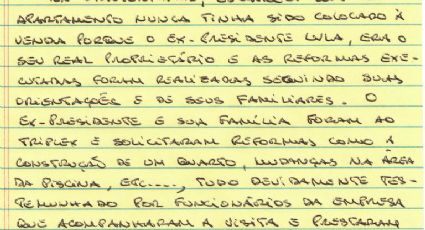 APARTAMENTO NUNCA TINHA SIDO COLOCADO À
VENDA PORQUE O EX-PRESIDENTE LULA, ERA O
SEU REAL PROPRIETÁRIO E AS REFORMAS EXE-
CUTADAS FORAM REALIZADAS SEGUINDO SUAS
ORIENTAÇÕES E DE SEUS FAMILIARES. O
EX-PRESIDENTE E SUA FAMÍLIA FORAM AO
TRIPLEX E SOLICITARAM REFORMAS COMO A
CONSTRUÇÃO DE UM QUARTO, MUDANÇAS NA ÁREA
DA PISCINA, ETC...., TUDO DEVIDAMENTE TES-
TEMUNHADO POR FUNCIONÁRIOS DA EMPRESA
QUE ACOMPANHARAM A VISITA E PRESTARAM